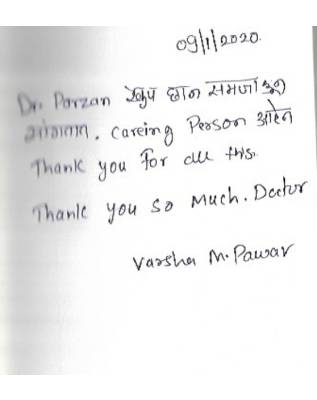 09/1/2020.
Dr. Parzan खुप छान समजाऊन
सांगतात. Careing Person आहेत
Thank you for all this.
Thank you so Much. Doctor
Varsha M. Pawar